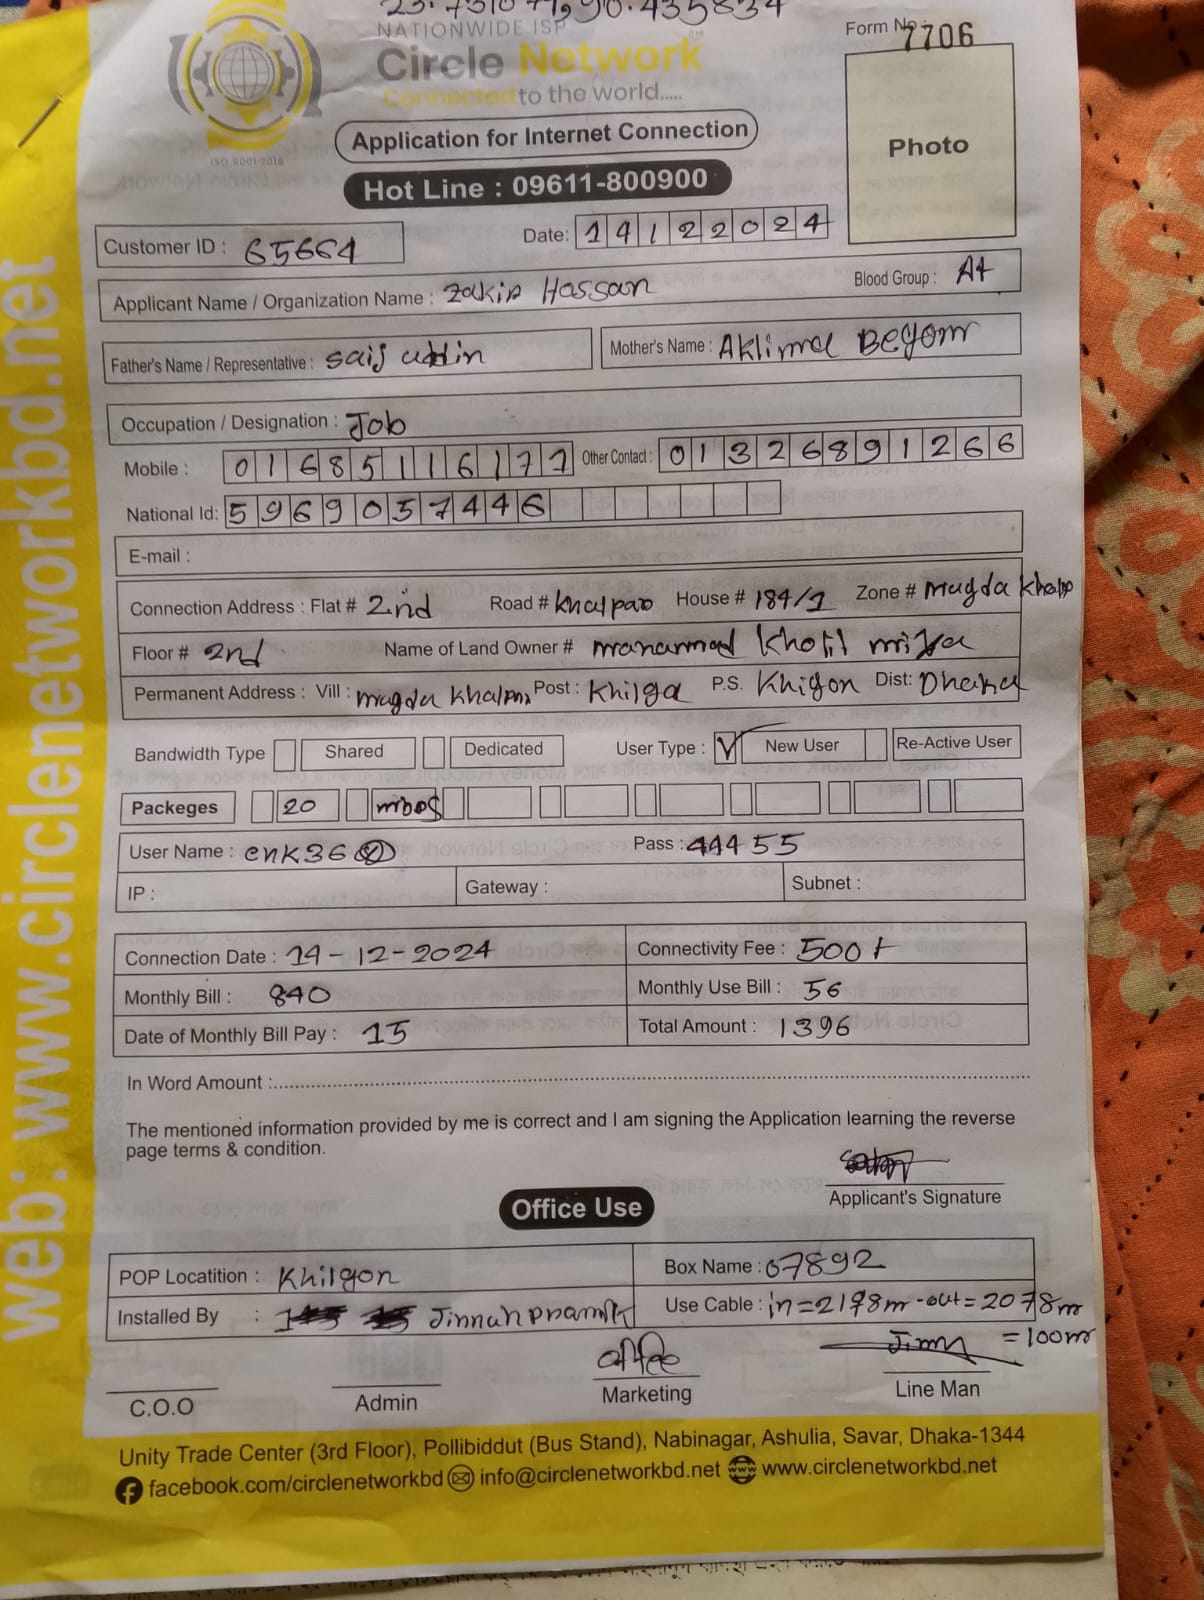 NATIONWIDE ISP
Form No 7706
Circle Network
Connected to the world.....
ISO 9001:2015
Application for Internet Connection
Photo
Hot Line : 09611-800900
Customer ID : 65664
Date: 14122024
Applicant Name / Organization Name : Zakir Hossan Blood Group : A+
Father's Name / Representative : Saif uddin Mother's Name : Aklima Begom
Occupation / Designation : Job
Mobile : 01685116177 Other Contact : 01326891266
National Id: 5969057446
E-mail :
Connection Address : Flat # 2nd Road # Khalpar House # 184/1 Zone # Mugda Khalp
Floor # 2nd Name of Land Owner # Kholil miya
Permanent Address : Vill : Mugda Khalpa, Post : Khilga P.S. Khigon Dist: Dhaka
Bandwidth Type Shared Dedicated User Type : New User Re-Active User
Packeges 20 mbps
User Name : Pass : 44455
IP : Gateway : Subnet :
Connection Date : 14-12-2024 Connectivity Fee : 500
Monthly Bill : 840 Monthly Use Bill : 56
Date of Monthly Bill Pay : 15 Total Amount : 1396
In Word Amount :
The mentioned information provided by me is correct and I am signing the Application learning the reverse
page terms & condition.
Applicant's Signature
Office Use
POP Locatition : Khilgon Box Name : 07892
Installed By : Jinnah Pramik Use Cable : in=2178m -out=2078m
=100m
C.O.O Admin Marketing Line Man
Unity Trade Center (3rd Floor), Pollibiddut (Bus Stand), Nabinagar, Ashulia, Savar, Dhaka-1344
facebook.com/circlenetworkbd info@circlenetworkbd.net www.circlenetworkbd.net
web: www.circlenetworkbd.net